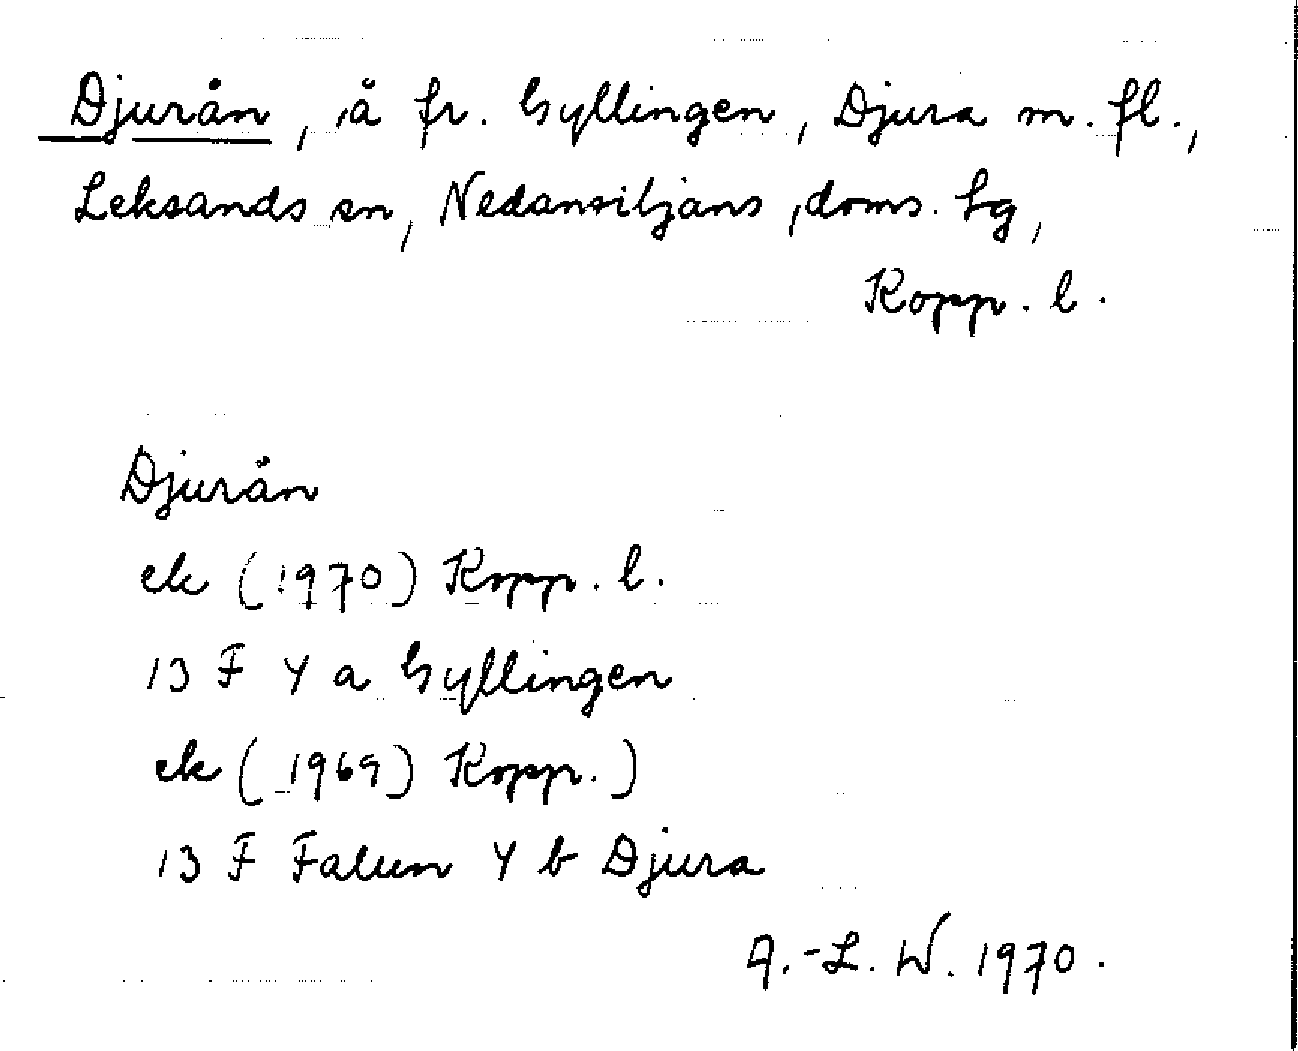 Djurån, å fr. Gyllingen, Djura m. fl.,
Leksands sn, Nedansiljans doms. lg,
Kopp. l.
Djurån
ek (1970) Kopp. l.
13 F 4 a Gyllingen
ek (1969) Kopp.)
13 F Falun 4 b Djura
A.-L. W. 1970.